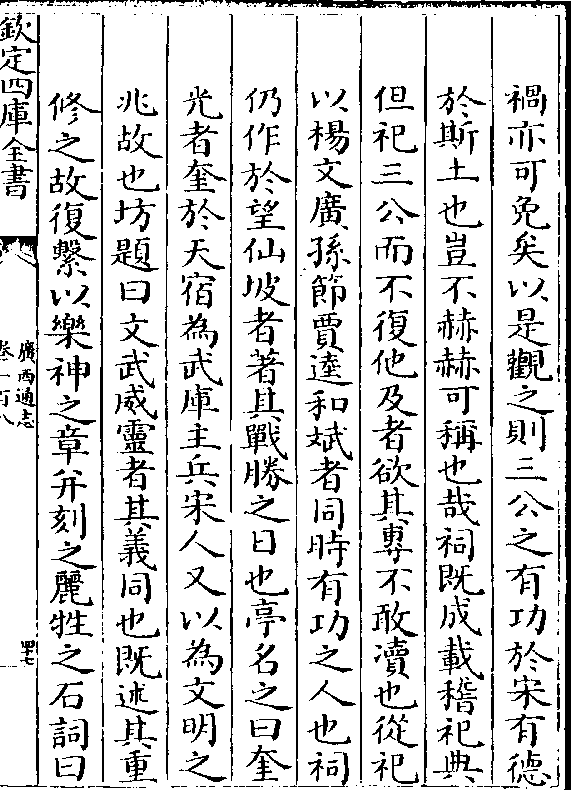 禍亦可免矣以是觀之則三公之有功於宋有德
於斯土也豈不赫赫可稱也哉祠既成載稽祀典
但祀三公而不復他及者欲其專不敢瀆也從祀
以楊文廣孫節賈逵和斌者同時有功之人也祠
仍作於望仙坡者著其戰勝之日也亭名之曰奎
光者奎於天宿為武庫主兵宋人又以為文明之
兆故也坊題曰文武威靈者其義同也既述其重
修之故復繫以樂神之章并刻之麗牲之石詞曰
欽定四庫全書
廣西通志
卷一百八
四七